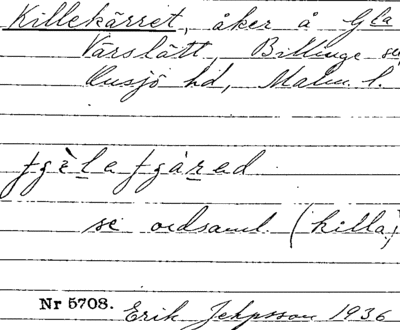 Killekärret, åker å Gla
Värslätt, Billinge
Onsjö hd, Malm. l.
se ordsaml. (killa)
Nr 5708. Erik Jeppsson 1936